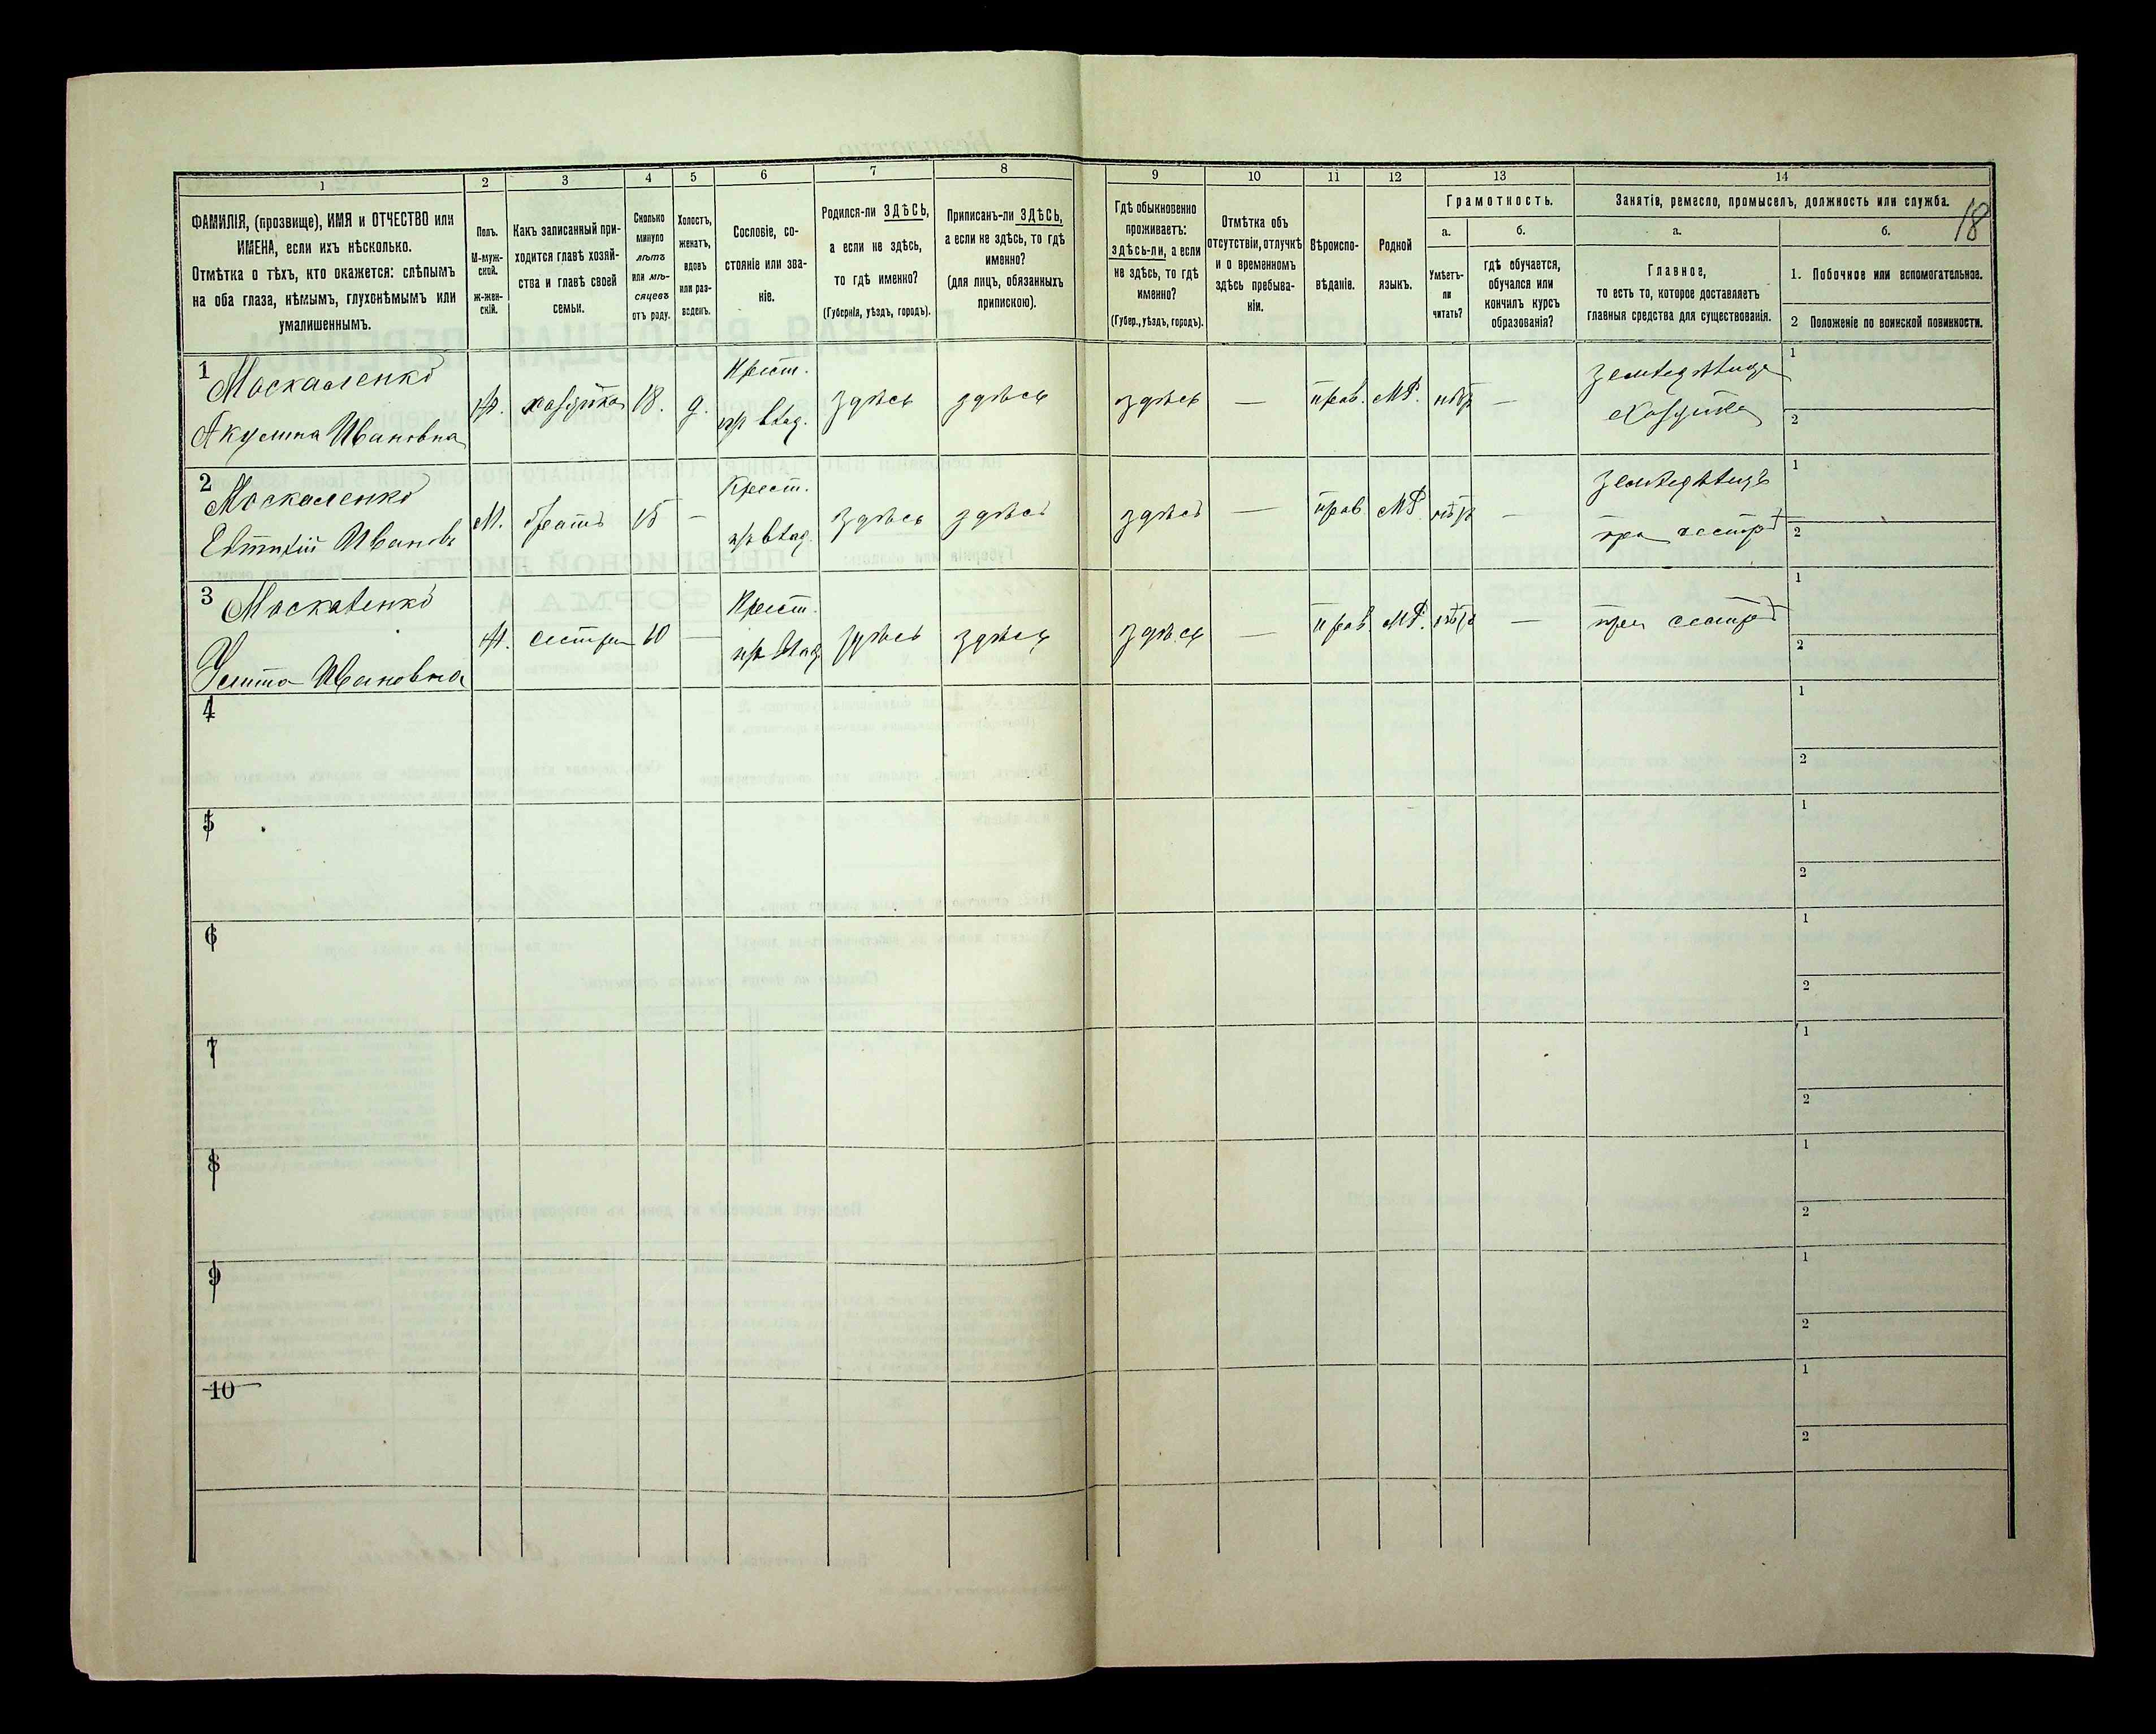 1 2 3 4 5 6 7 8 9 10 11 12 13 14
18
ФАМИЛІЯ, (прозвище), ИМЯ и ОТЧЕСТВО или
ИМЕНА, если ихъ нѣсколько.
Отмѣтка о тѣхъ, кто окажется: слѣпымъ
на оба глаза, нѣмымъ, глухонѣмымъ или
умалишеннымъ.
Полъ.
М-муж-
ской.
ж-жен-
скій.
Какъ записанный при-
ходится главѣ хозяй-
ства и главѣ своей
семьи.
Сколько
минуло
лѣтъ
или мѣ-
сяцевъ
отъ роду.
Холостъ,
женатъ,
вдовъ
или раз-
веденъ.
Сословіе, со-
стояніе или зва-
ніе.
Родился-ли ЗДѢСЬ,
а если не здѣсь,
то гдѣ именно?
(Губернія, уѣздъ, городъ).
Приписанъ-ли ЗДѢСЬ,
а если не здѣсь, то гдѣ
именно?
(для лицъ, обязанныхъ
припискою).
Гдѣ обыкновенно
проживаетъ:
здѣсь-ли, а если
не здѣсь, то гдѣ
именно?
(Губер., уѣздъ, городъ).
Отмѣтка объ
отсутствіи, отлучкѣ
и о временномъ
здѣсь пребыва-
ніи.
Вѣроиспо-
вѣданіе.
Родной
языкъ.
Грамотность.
а.
Умѣетъ-
ли
читать?
б.
гдѣ обучается,
обучался или
кончилъ курсъ
образованія?
Занятіе, ремесло, промыселъ, должность или служба.
а.
Главное,
то есть то, которое доставляетъ
главныя средства для существованія.
б.
1. Побочное или вспомогательное.
2 Положеніе по воинской повинности.
1 Москаленко
Акулина Ивановна
ж. хозяйка 18. д. Крест.
здѣсь здѣсь здѣсь — прав. МР. —
земледѣлица
хозяйка
1
2
2 Москаленко
Евтихій Ивановъ
М. братъ 15 — Крест.
здѣсь здѣсь здѣсь — прав МР —
земледѣлецъ
при сестрѣ
1
2
3 Москаленко
Улита Ивановна
ж. сестра 10 — Крест.
здѣсь здѣсь здѣсь — прав. МР. —
при сестрѣ
1
2
4
1
2
5
1
2
6
1
2
7
1
2
8
1
2
9
1
2
10
1
2